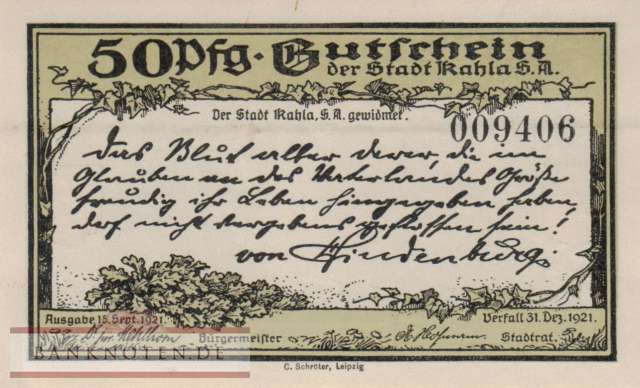 50 Pfg. Gutschein
der Stadt Kahla S.A.
Der Stadt Kahla, S.A. gewidmet.
009406
Das Blut aller derer, die im
Glauben an des Vaterlandes Größe
freudig ihr Leben hingegeben haben,
darf nicht vergebens geflossen sein!
von Hindenburg.
Ausgabe 15. Sept. 1921.
Verfall 31. Dez. 1921.
Bürgermeister
Stadtrat.
BANKNOTEN.DE
C. Schröter, Leipzig